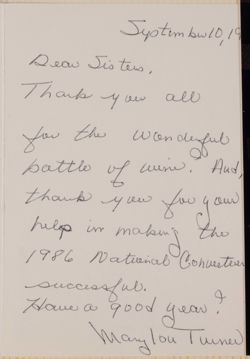 September 10, 19
Dear Sisters,
Thank you all
for the wonderful
bottle of wine. And,
thank you for your
help in making the
1986 National Convention
successful.
Have a good year!
Mary Lou Turner